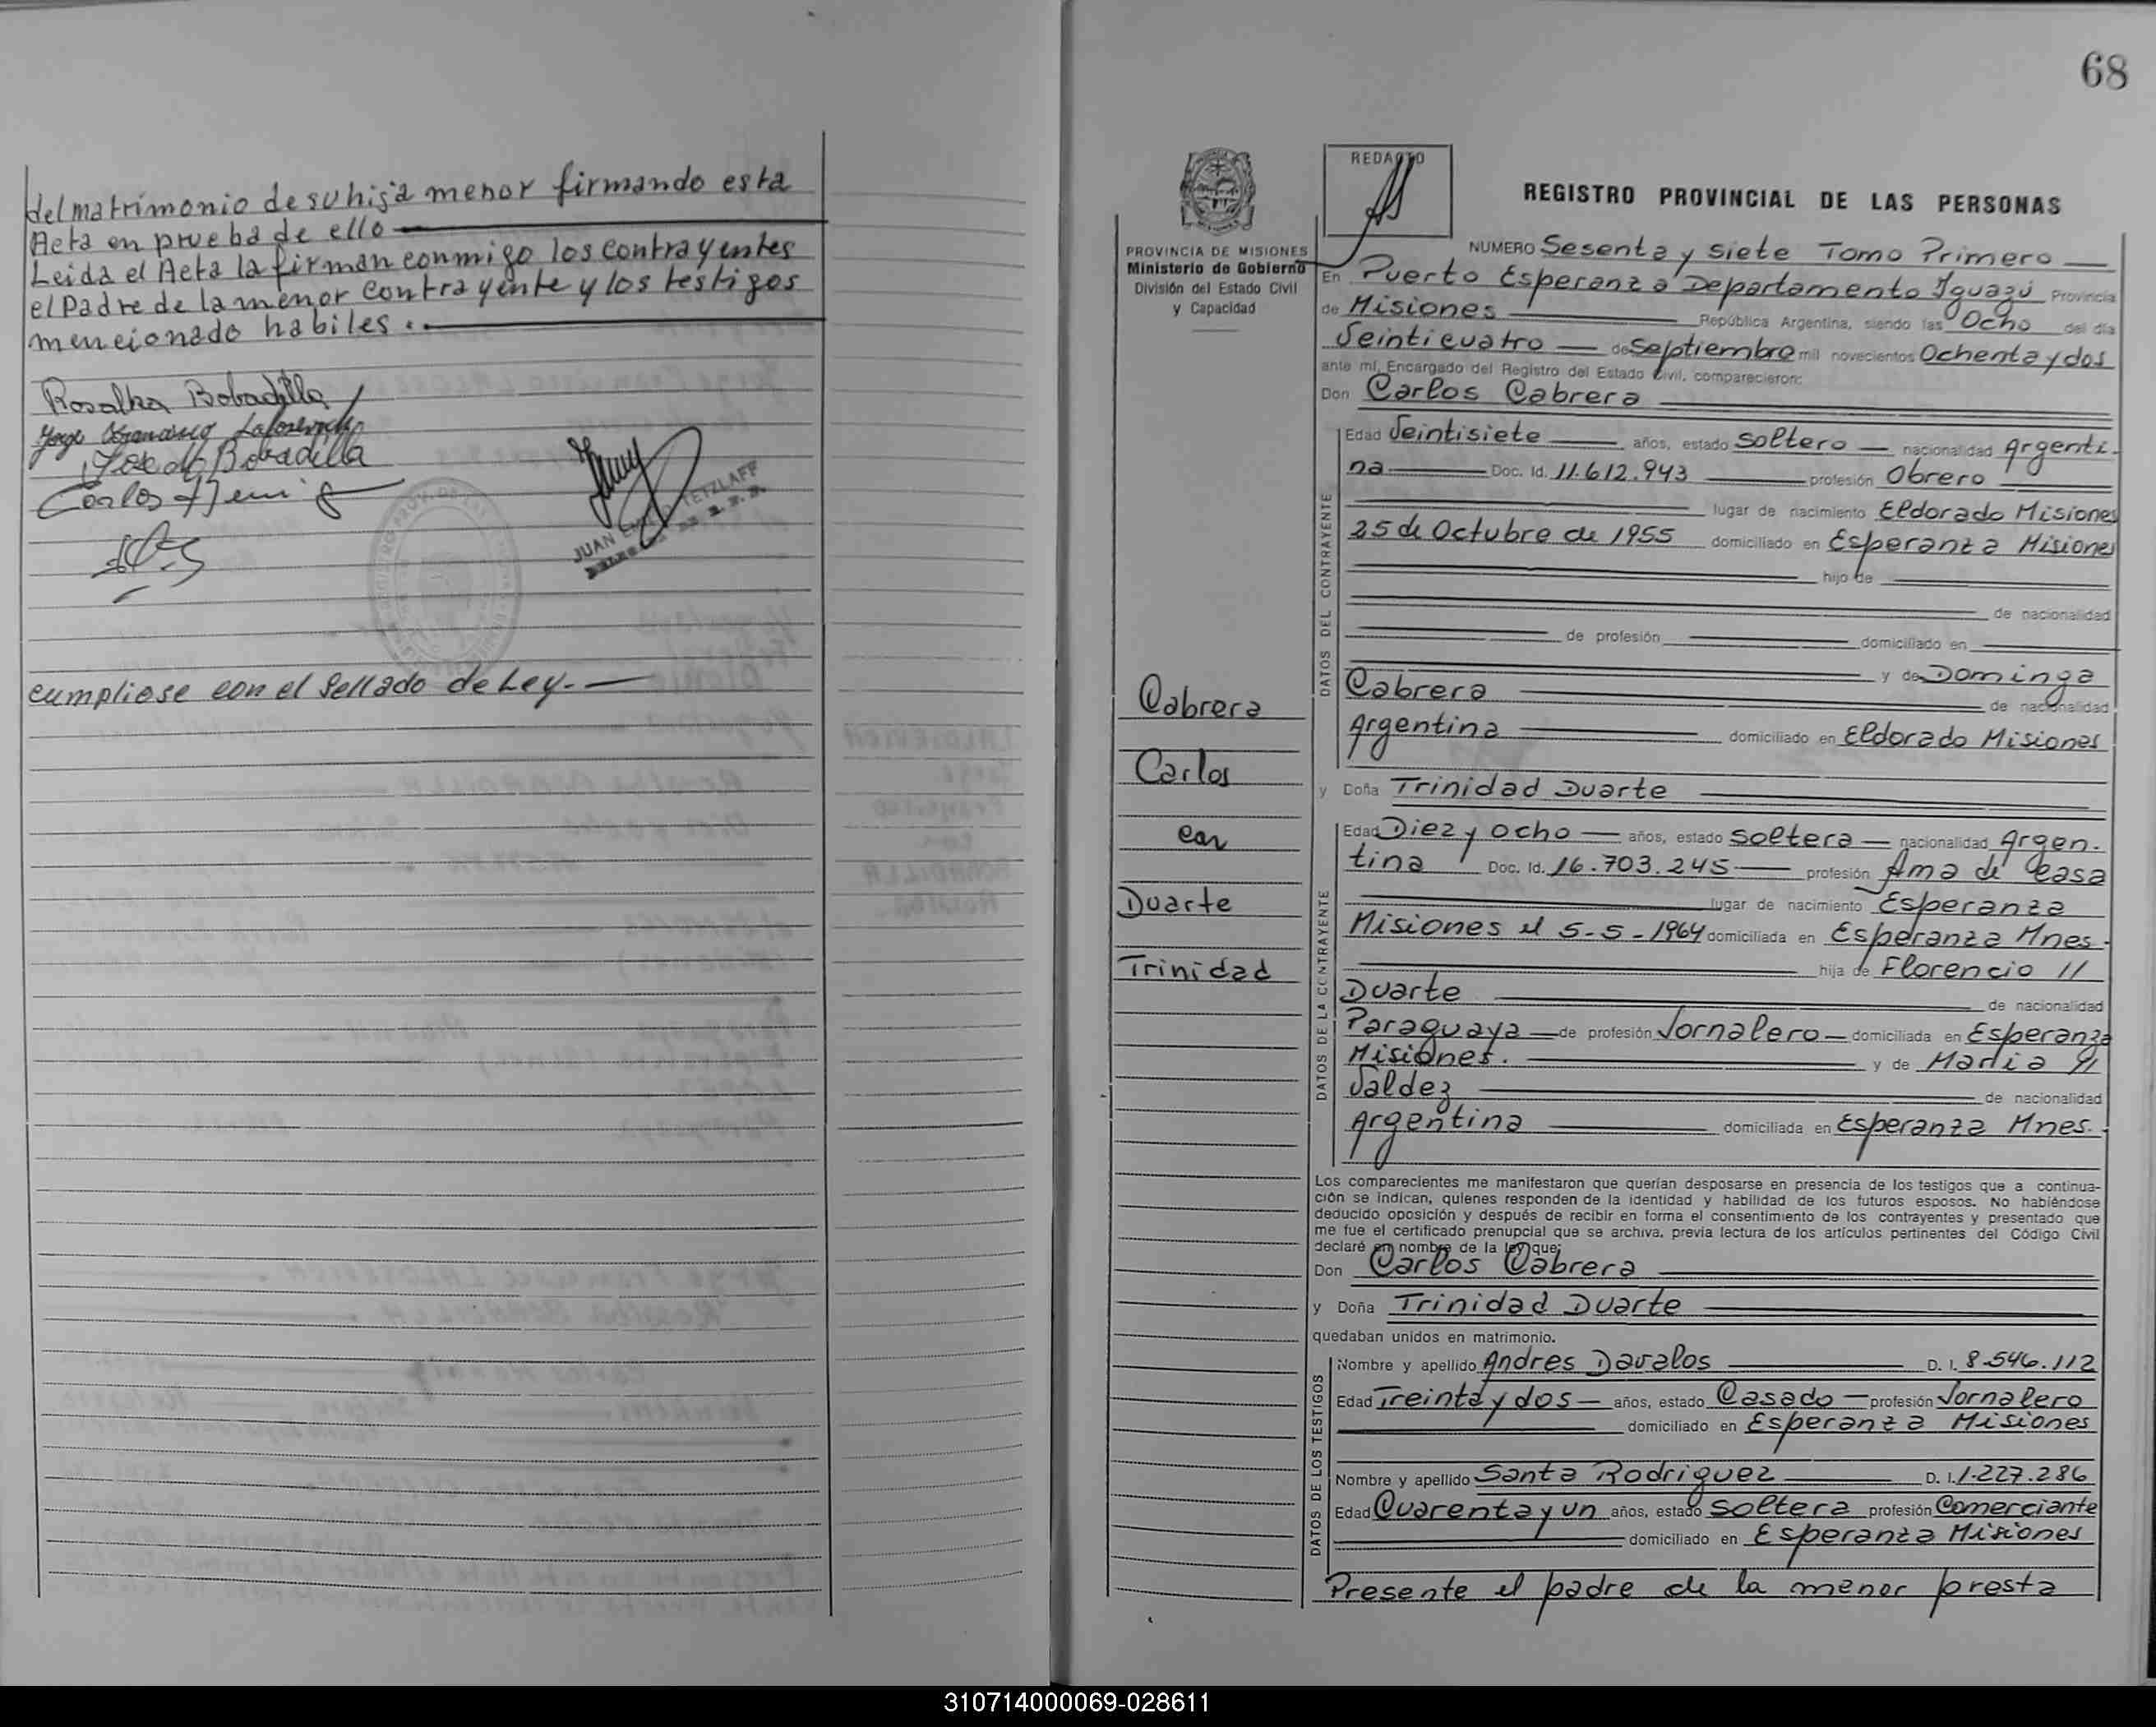 del matrimonio de su hija menor firmando esta
Acta en prueba de ello
Leida el Acta la firman conmigo los contrayentes
el Padre de la menor contrayente y los testigos
mencionado habiles.
Rosalba Bobadilla
Jorge Francisco
Bobadilla
Carlos
JUAN TETZLAFF
cumpliose con el Sellado de Ley.-
68
REDACTO
REGISTRO PROVINCIAL DE LAS PERSONAS
PROVINCIA DE MISIONES
Ministerio de Gobierno
División del Estado Civil
y Capacidad
NUMERO Sesenta y siete Tomo Primero
En Puerto Esperanza Departamento Iguazú Provincia
de Misiones República Argentina, siendo las Ocho del día
Veinticuatro de Septiembre mil novecientos Ochenta y dos
ante mí, Encargado del Registro del Estado Civil, comparecieron:
Don Carlos Cabrera
DATOS DEL CONTRAYENTE
Edad Veintisiete años, estado Soltero nacionalidad Argenti-
na Doc. Id. 11.612.943 profesión Obrero
lugar de nacimiento Eldorado Misiones
25 de Octubre de 1955 domiciliado en Esperanza Misiones
hijo de
de nacionalidad
de profesión domiciliado en
y de Dominga
Cabrera de nacionalidad
Argentina domiciliado en Eldorado Misiones
Cabrera
Carlos
con
Duarte
Trinidad
y Doña Trinidad Duarte
DATOS DE LA CONTRAYENTE
Edad Diez y ocho años, estado Soltera nacionalidad Argen-
tina Doc. Id. 16.703.245 profesión Ama de Casa
lugar de nacimiento Esperanza
Misiones el 5-5-1964 domiciliada en Esperanza Mnes.
hija de Florencio //
Duarte de nacionalidad
Paraguaya de profesión Jornalero domiciliada en Esperanza
Misiones. y de Maria //
Valdez de nacionalidad
Argentina domiciliada en Esperanza Mnes.
Los comparecientes me manifestaron que querían desposarse en presencia de los testigos que a continua-
ción se indican, quienes responden de la identidad y habilidad de los futuros esposos. No habiéndose
deducido oposición y después de recibir en forma el consentimiento de los contrayentes y presentado que
me fue el certificado prenupcial que se archiva, previa lectura de los artículos pertinentes del Código Civil
declaré en nombre de la ley que:
Don Carlos Cabrera
y Doña Trinidad Duarte
quedaban unidos en matrimonio.
DATOS DE LOS TESTIGOS
Nombre y apellido Andres Davalos D. I. 8.546.112
Edad Treinta y dos años, estado Casado profesión Jornalero
domiciliado en Esperanza Misiones
Nombre y apellido Santa Rodriguez D. I. 1.227.286
Edad Cuarenta y un años, estado Soltera profesión Comerciante
domiciliado en Esperanza Misiones
Presente el padre de la menor presta
310714000069-028611